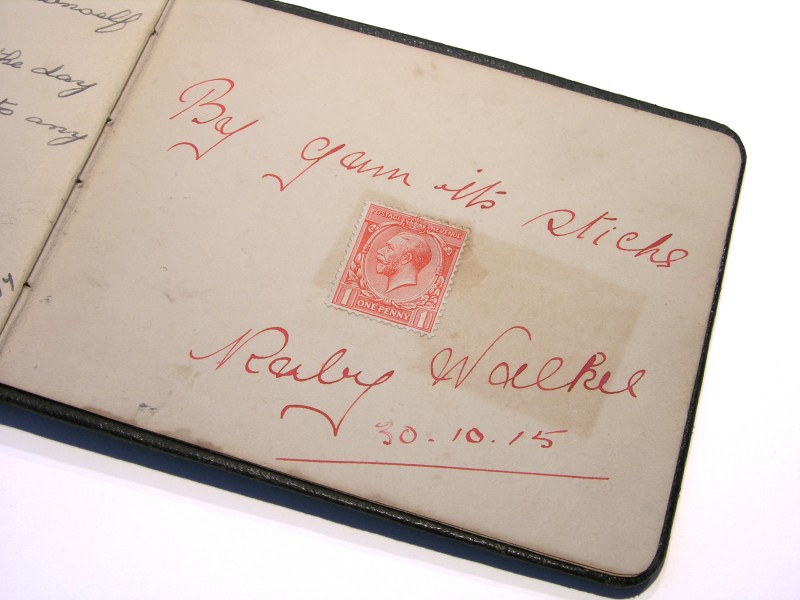 omself
the day
to any
By gum its sticks
POSTAGE REVENUE
1 ONE PENNY 1
Ruby Walker
30.10.15